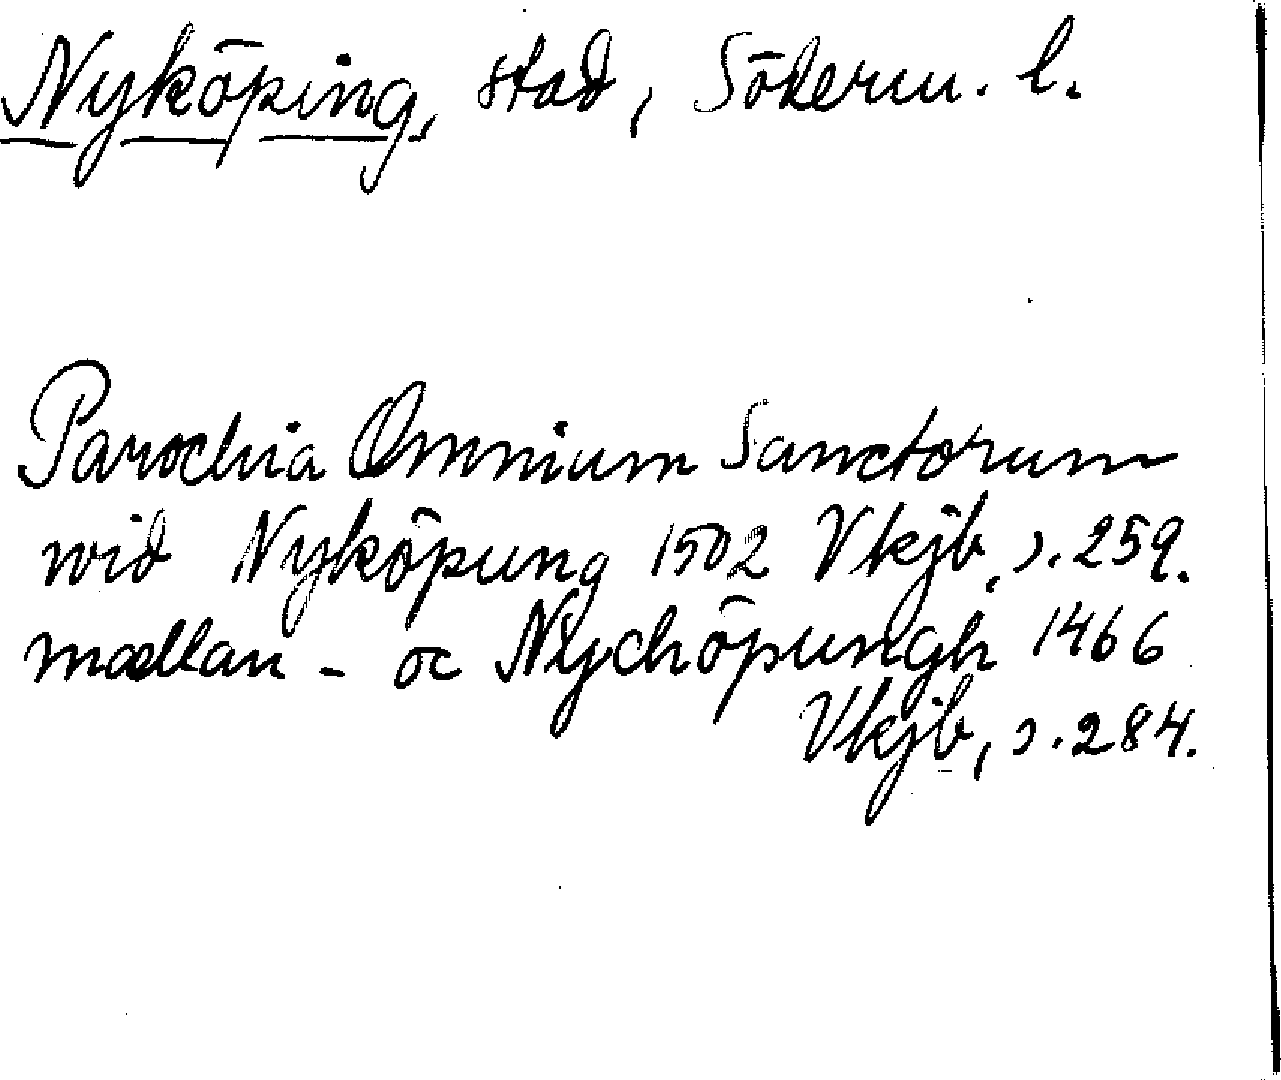 Nyköping, stad, Söderm. l.
Parochia Omnium Sanctorum
wid Nyköpung 1502 Vkjb, s. 259.
mædlan - oc Nychöpungh 1466
Vkjb, s. 284.